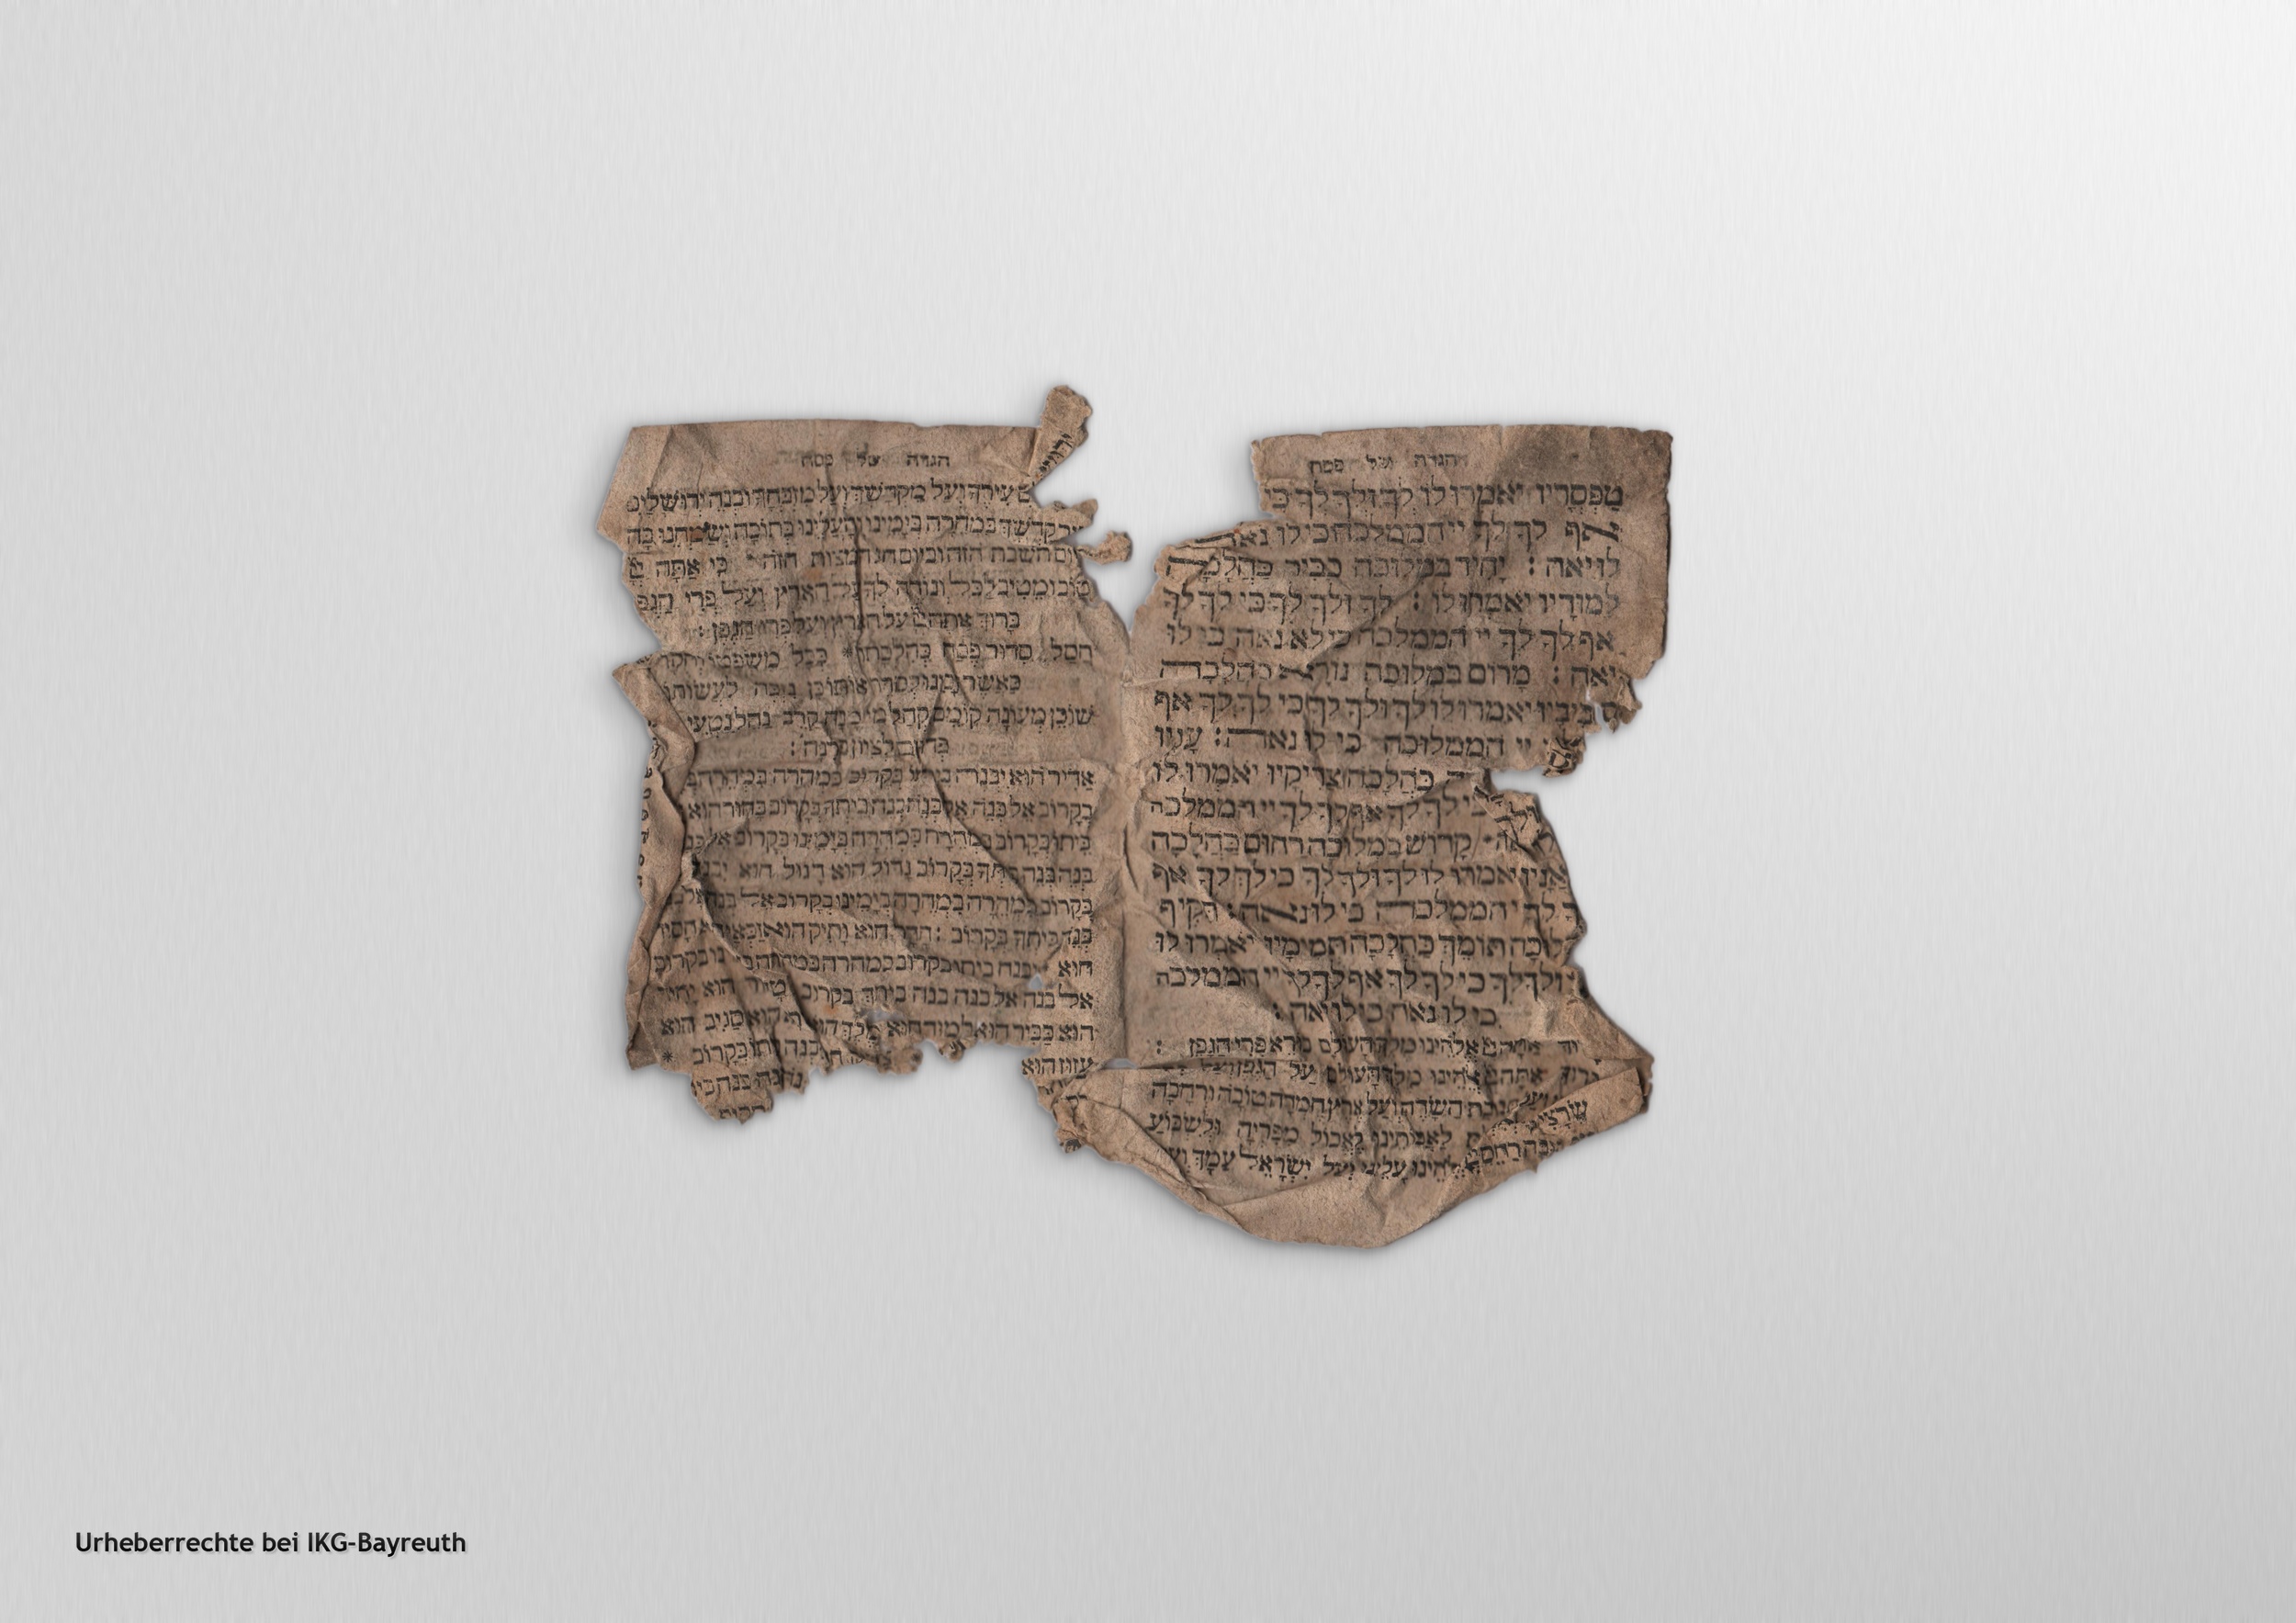 הגדה של פסח
טפסריו יאמרו לו לך ולך לך כי
אף לך לך יי הממלכה כי לו נאה
לו יאה : יחיד במלוכה כביר כהלכה
למודיו יאמרו לו : לך ולך לך כי לך לך
אף לך לך יי הממלכה כי לא נאה כי לו
יאה : מרום במלוכה נורא כהלכה
סביביו יאמרו לו לך ולך לך כי לך לך אף
יי הממלוכה כי לו נאה : עניו
כהלכה צדיקיו יאמרו לו
כי לך לך אף לך לך יי הממלכה
קדוש במלוכה רחום כהלכה
יאמרו לו לך ולך לך כי לך לך אף
לך יי הממלכה כי לו נאה : תקיף
תומך כהלכה תמימיו יאמרו לו
ולך לך כי לך לך אף לך לך יי הממלכה
כי לו נאה כי לו יאה :
אתה יי אלהינו מלך העולם בורא פרי הגפן :
אתה יי אלהינו מלך העולם על הגפן
השדה ועל ארץ חמדה טובה ורחבה
לאבותינו לאכול מפריה ולשבוע
עלינו ועל ישראל עמך
הגדה של פסח
עירך ועל מקדשך ועל מזבחך ובנה ירושלים
קדשך במהרה בימינו והעלינו בתוכה ושמחנו בה
השבת הזה וביום חג המצות הזה כי אתה
טוב ומטיב לכל ונודה לך על הארץ ועל פרי הגפן
ברוך אתה יי על הארץ ועל פרי הגפן :
חסל סדור פסח כהלכתו * ככל משפטו וחקתו
כאשר זכינו לסדר אותו כן נזכה לעשותו
שוכן מעונה קומם קהל מי מנה קרב נהל נטעי
פדוים לציון ברנה :
אדיר הוא יבנה ביתו בקרוב במהרה במהרה
בקרוב אל בנה אל בנה בנה ביתך בקרוב בחור הוא
ביתו בקרוב במהרה במהרה בימינו בקרוב אל
בנה בנה ביתך בקרוב גדול הוא דגול הוא יבנה
בקרוב במהרה במהרה בימינו בקרוב אל בנה אל
בנה ביתך בקרוב : הדר הוא ותיק הוא זכאי הוא חסיד
הוא יבנה ביתו בקרוב במהרה במהרה בקרוב
אל בנה אל בנה בנה ביתך בקרוב טהור הוא יחיד
הוא כביר הוא למוד הוא מלך הוא סגיב הוא
עזוז הוא
בנה ביתו בקרוב *